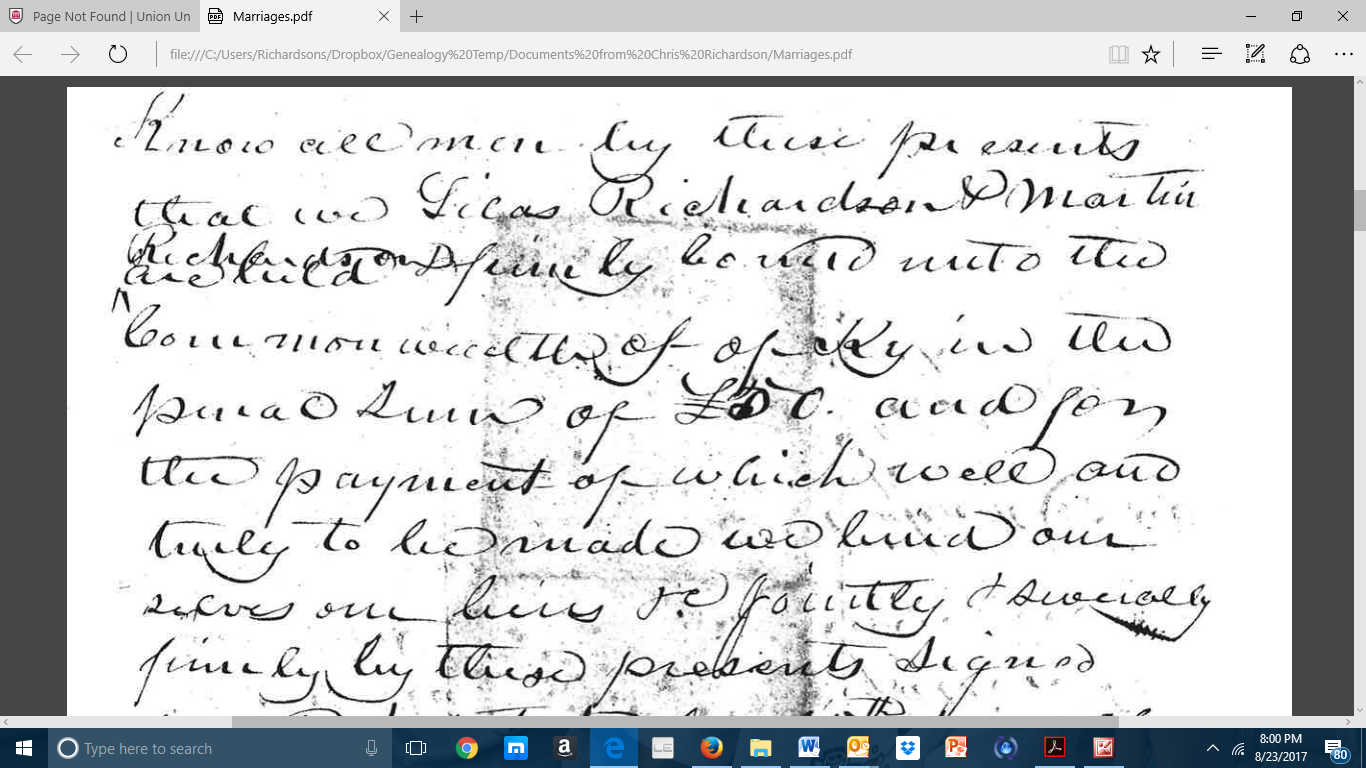 Page Not Found | Union Un
Marriages.pdf
file:///C:/Users/Richardsons/Dropbox/Genealogy%20Temp/Documents%20from%20Chris%20Richardson/Marriages.pdf
Know all men by these presents
that we Silas Richardson & Martin
Richardson
are held & firmly bound unto the
Commonwealth of of Ky in the
penal Sum of £50. and for
the payment of which well and
truly to be made we bind our
selves our heirs &c jointly & severally
firmly by these presents Signed
Type here to search
8:00 PM
8/23/2017
80